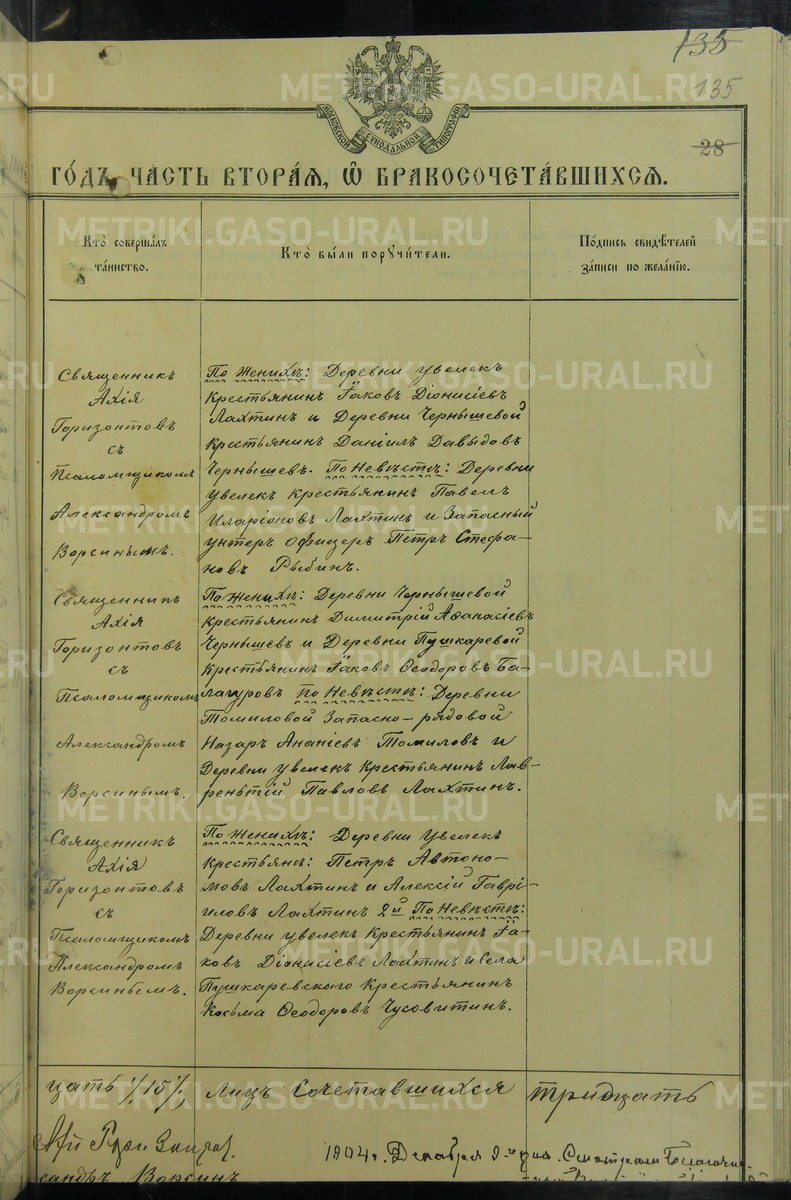 135
135
28
МОСКОВСКОЙ СѴНОДАЛЬНОЙ ТИПОГРАФІИ
ГО́ДЪ ЧА́СТЬ ВТОРА́Я, Ѡ БРАКОСОЧЕТА́ВШИХСЯ.
Кто̀ соверша́лъ
та́инство.
Кто̀ бы́ли порꙋчи́тели.
По́дпись свидѣ́телей
за́писи по жела́нїю.
Священникъ
Ахія
Горизонтовъ
съ
Псаломщикомъ
Александромъ
Ворсинымъ.
По Женихѣ: Деревни Увелекъ
Крестьянинъ Іаковъ Діонисіевъ
Лахтинъ и Деревни Чернышевой
Крестьянинъ Даніилъ Давыдовъ
Чернышевъ. По Невѣстѣ: Деревни
Увелекъ Крестьянинъ Павелъ
Иларіоновъ Лахтинъ и Запасный
унтеръ офицеръ Петръ Стефа-
новъ Рыбинъ.
Священникъ
Ахія
Горизонтовъ
съ
Псаломщикомъ
Александромъ
Ворсинымъ.
По Женихѣ: Деревни Чернышевой
Крестьянинъ Димитрій Аѳанасіевъ
Чернышевъ и Деревни Пушкаревой
Крестьянинъ Іаковъ Ѳеодоровъ Ба-
лагуровъ По Невѣстѣ: Деревни
Томиловой Запасно-рядовой
Назаръ Ананіевъ Томиловъ и
Деревни Увелекъ Крестьянинъ Лав-
рентій Павловъ Лахтинъ.
Священникъ
Ахія
Горизонтовъ
съ
Псаломщикомъ
Александромъ
Ворсинымъ.
По Женихѣ: Деревни Увелекъ
Крестьяне: Петръ Автоно-
мовъ Лахтинъ и Алексій Гаврі-
иловъ Лахтинъ 2й По Невѣстѣ:
Деревни Увелекъ Крестьянинъ Іа-
ковъ Діонисіевъ Лахтинъ и Села
Пушкаревскаго Крестьянинъ
Косьма Ѳеодоровъ Чусовитинъ.
цать /15/, Лицъ Сочетавшихся тридцать
1904 г. Декабря 9го дня. Смотрѣлъ Благочин-
сандръ Ворсинъ
METRIKI.GASO-URAL.RU